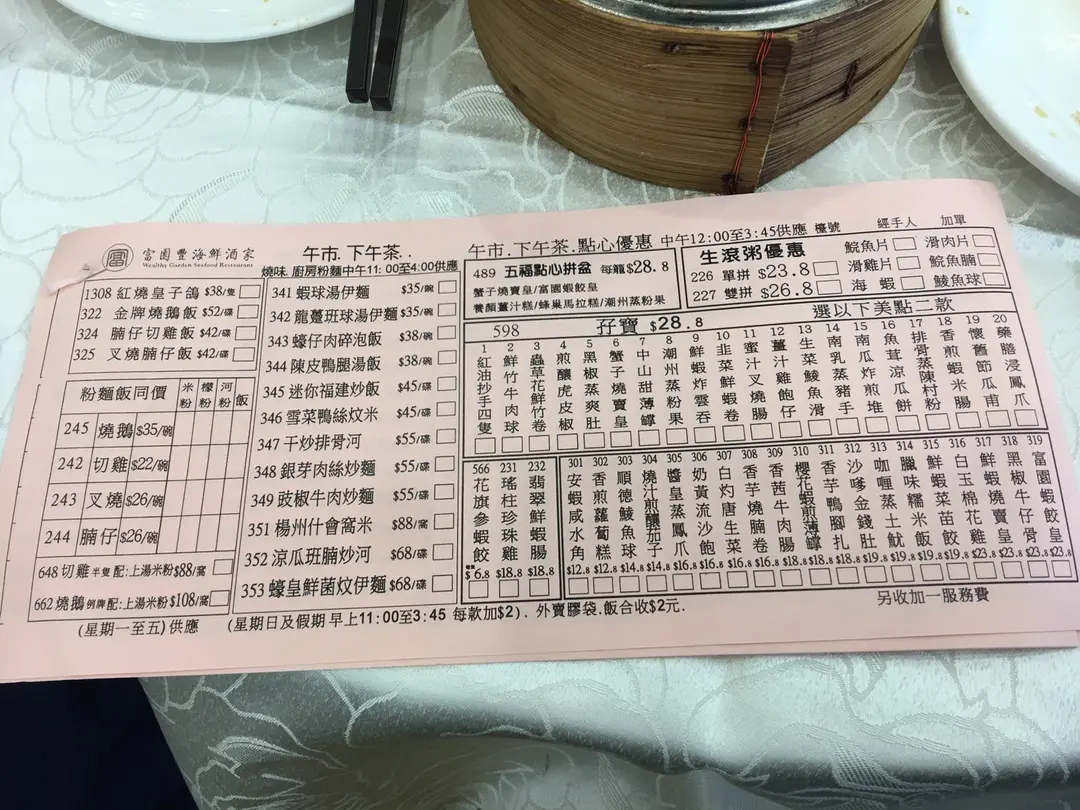 富園豐海鮮酒家
Wealthy Garden Seafood Restaurant
午市. 下午茶. .
燒味. 廚房粉麵中午11:00至4:00供應
1308 紅燒皇子鴿 $38/隻
322 金牌燒鵝飯 $52/碟
324 腩仔切雞飯 $42/碟
325 叉燒腩仔飯 $42/碟
粉麵飯同價 米粉 檬粉 河粉 飯
245 燒鵝 $35/碗
242 切雞 $22/碗
243 叉燒 $26/碗
244 腩仔 $26/碗
648 切雞 半隻 配:上湯米粉 $88/窩
662 燒鵝 例牌 配:上湯米粉 $108/窩
(星期一至五) 供應
341 蝦球湯伊麵 $35/碗
342 龍躉班球湯伊麵 $35/碗
343 蠔仔肉碎泡飯 $38/碗
344 陳皮鴨腿湯飯 $38/碗
345 迷你福建炒飯 $45/碟
346 雪菜鴨絲炆米 $45/碟
347 干炒排骨河 $55/碟
348 銀芽肉絲炒麵 $55/碟
349 豉椒牛肉炒麵 $55/碟
351 楊州什會窩米 $88/窩
352 涼瓜班腩炒河 $68/碟
353 蠔皇鮮菌炆伊麵 $68/碟
(星期日及假期 早上11:00至3:45 每款加$2). 外賣膠袋.飯合收$2元.
午市. 下午茶. 點心優惠 中午12:00至3:45供應 檯號
經手人 加單
489 五福點心拼盆 每籠$28.8
蟹子燒賣皇/富園蝦餃皇
養顏薑汁糕/蜂巢馬拉糕/潮州蒸粉果
生滾粥優惠
226 單拼 $23.8
227 雙拼 $26.8
鯇魚片 滑肉片
滑雞片 鯇魚腩
海 蝦 鯪魚球
598 孖寶 $28.8 選以下美點二款
1 紅油抄手四隻
2 鮮竹牛肉球
3 蟲草花鮮竹卷
4 煎釀虎皮椒
5 黑椒蒸爽肚
6 蟹子燒賣皇
7 中山甜薄罉
8 潮州蒸粉果
9 鮮蝦炸雲吞
10 韭菜鮮蝦卷
11 蜜汁叉燒腸
12 薑汁雞飽仔
13 生菜鯪魚滑
14 南乳蒸豬手
15 南瓜炸煎堆
16 魚茸涼瓜餅
17 排骨蒸陳村粉
18 香煎蝦米腸
19 懷舊節瓜甫
20 藥膳浸鳳爪
566 花旗參蝦餃 $6.8
231 瑤柱珍珠雞 $18.8
232 翡翠鮮蝦腸 $18.8
301 安蝦咸水角 $12.8
302 香煎蘿蔔糕 $12.8
303 順德鯪魚球 $14.8
304 燒汁煎釀茄子 $14.8
305 醬皇蒸鳳爪 $14.8
306 奶黃流沙飽 $16.8
307 白灼唐生菜 $16.8
308 香芋燒腩卷 $16.8
309 香茜牛肉腸 $18.8
310 櫻花蝦煎薄罉 $18.8
311 香芋鴨腳扎 $18.8
312 沙嗲金錢肚 $18.8
313 咖喱蒸土魷 $19.8
314 臘味糯米飯 $19.8
315 鮮蝦菜苗餃 $19.8
316 白玉棉花雞 $19.8
317 鮮蝦燒賣皇 $23.8
318 黑椒牛仔骨 $23.8
319 富園蝦餃皇 $23.8
另收加一服務費